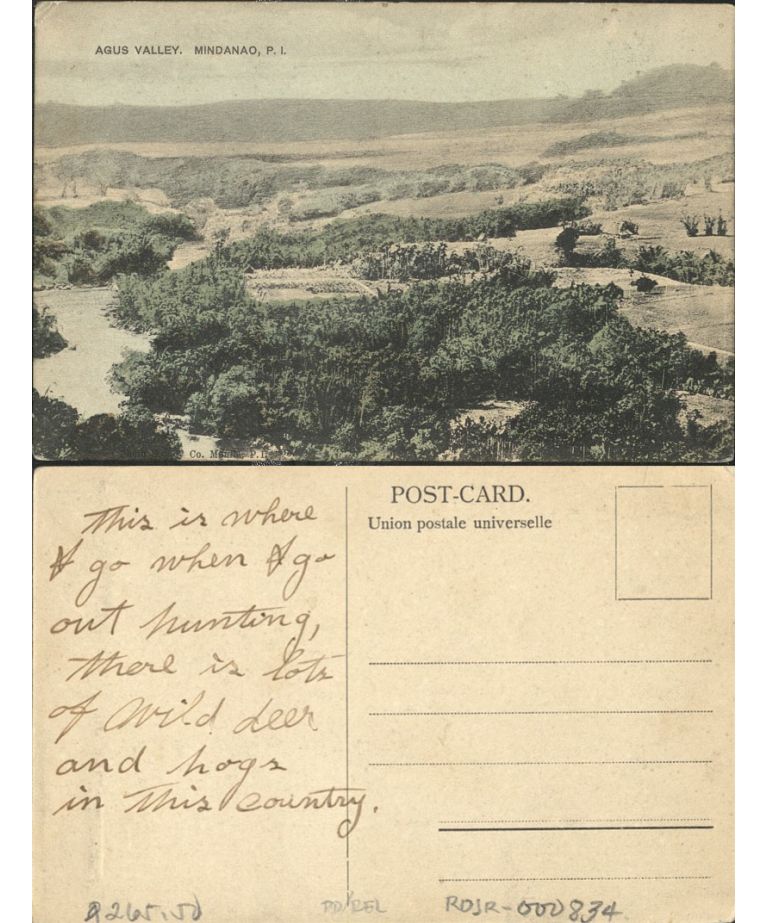 AGUS VALLEY. MINDANAO, P. I.
Co. Manila, P.I.
This is where
I go when I go
out hunting,
there is lots
of wild deer
and hogs
in this country.
POST-CARD.
Union postale universelle
RDJR-000834